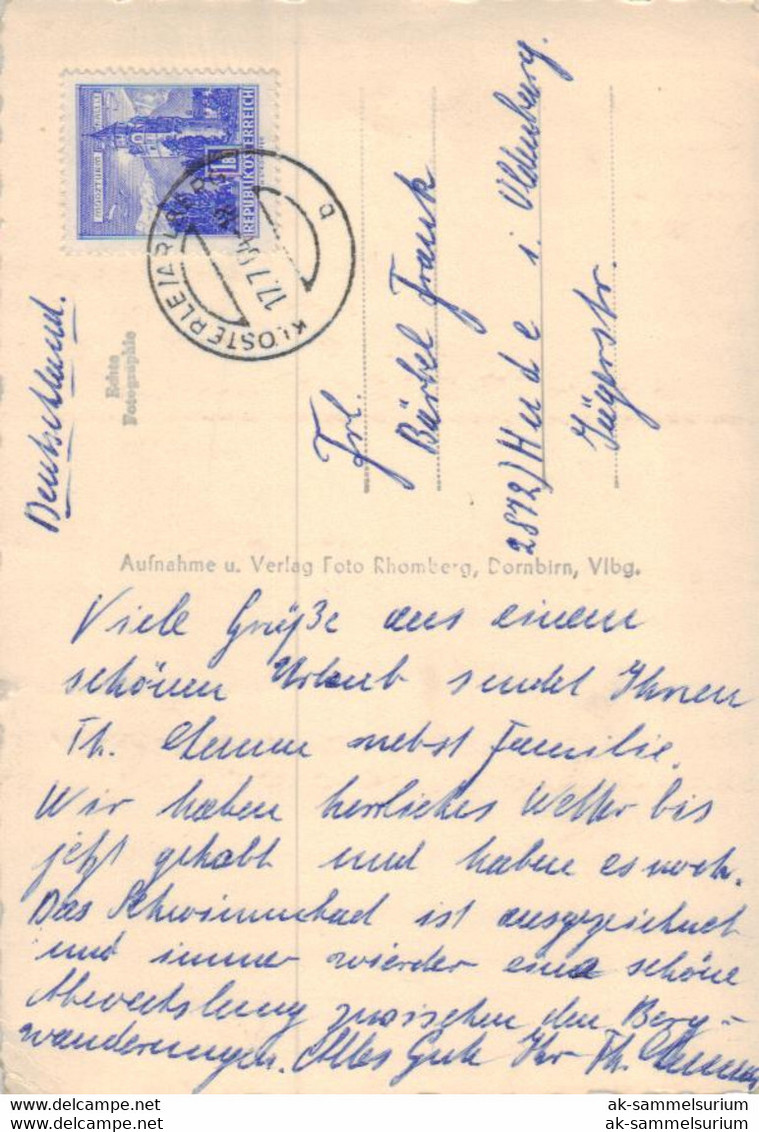 REPUBLIK ÖSTERREICH
KLOSTERLE (ARLBERG)
17.7.64
a
Deutschland.
Echte
Fotografie
Frl.
Bärbel Frank
2872) Hude i. Oldenburg.
Jägerstr.
Aufnahme u. Verlag Foto Rhomberg, Dornbirn, Vlbg.
Viele Grüße aus einem
schönen Urlaub sendet Ihnen
Th. nebst Familie.
Wir haben herrliches Wetter bis
jetzt gehabt und haben es noch.
Das Schwimmbad ist ausgezeichnet
und immer wieder eine schöne
Abwechslung zwischen den Berg-
wanderungen. Alles Gute Ihr Th.
ak-sammelsurium
ak-sammelsurium